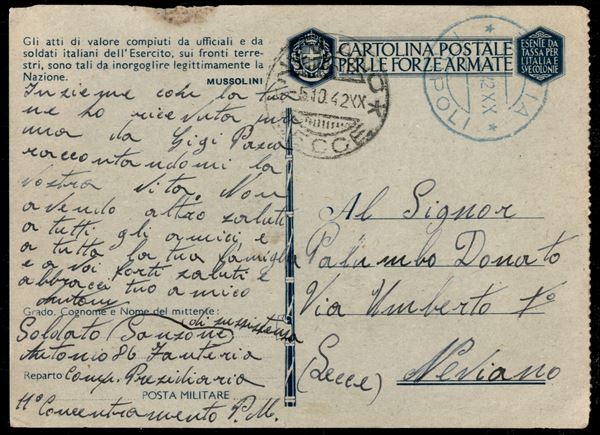 Gli atti di valore compiuti da ufficiali e da
soldati italiani dell'Esercito, sui fronti terre-
stri, sono tali da inorgoglire legittimamente la
Nazione.
MUSSOLINI
Insieme con la tua
ne ho ricevuta
una da Gigi Pasca
raccontandomi la
vostra vita. Non
avendo altro saluti
a tutti gli amici e
a tutta la tua famiglia
e a voi forti saluti e
abbracci tuo amico
Antonio
Grado, Cognome e Nome del mittente:
di sussistenza
Soldato (Sanzone)
Antonio 86 Fanteria
Reparto Comp. Presidiaria
POSTA MILITARE
11° Concentramento P.M.
CARTOLINA POSTALE
PER LE FORZE ARMATE
ESENTE DA
TASSA PER
L'ITALIA E
SVE COLONIE
5.10.42 XX
LECCE
Al Signor
Palumbo Donato
Via Umberto I°
(Lecce) Neviano